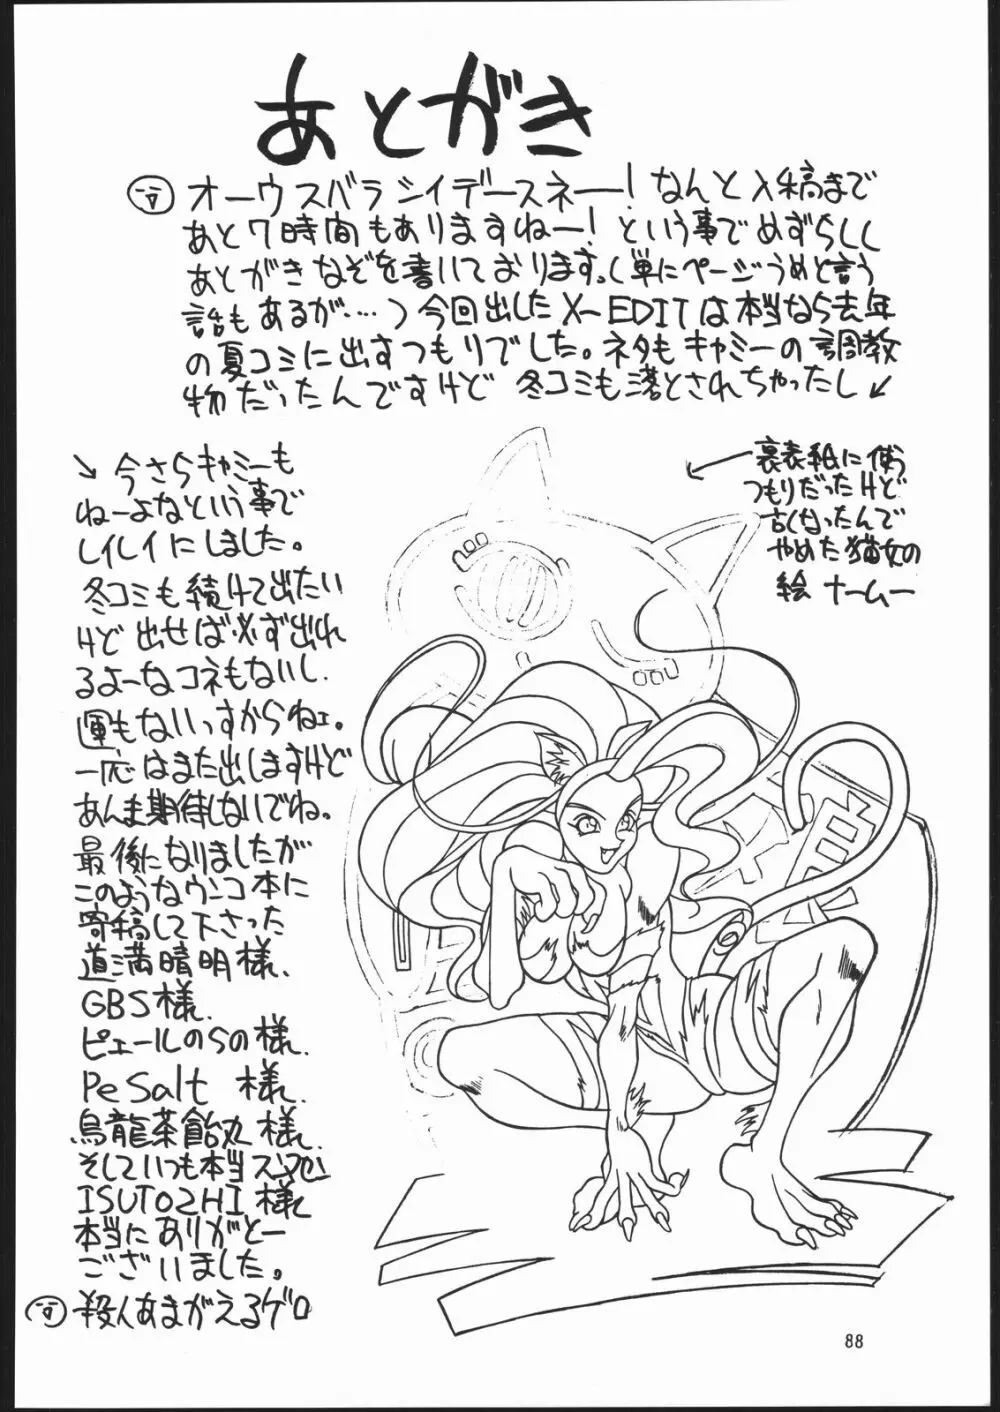 あとがき
オーウスバラシイデースネー!なんと入稿まで
あと7時間もありますねー!という事でめずらしく
あとがきなぞを書いております。(単にページうめと言う
話もあるが…)今回出したX-EDITは本当なら去年
の夏コミに出すつもりでした。ネタもキャミーの調教
物だったんですけど 冬コミも落とされちゃったし↙
↘今さらキャミーも
ねーよなという事で
レイレイにしました。
冬コミも続けて出たい
けど出せば必ず出れ
るよーなコネもないし、
運もないっすからねェ。
一応はまた出しますけど
あんま期待しないでね。
最後になりましたが
このようなウンコ本に
寄稿して下さった
道満晴明様、
GBS様、
ピエールのらの様、
Pe Salt 様、
烏龍茶飴丸様、
そしていつも本当スンマセン
ISUTOSHI様
本当にありがとー
ございました。
殺人あまがえるゲロ
← 裏表紙に使う
つもりだったけど
古くなったんで
やめた猫女の
絵 ナームー
88